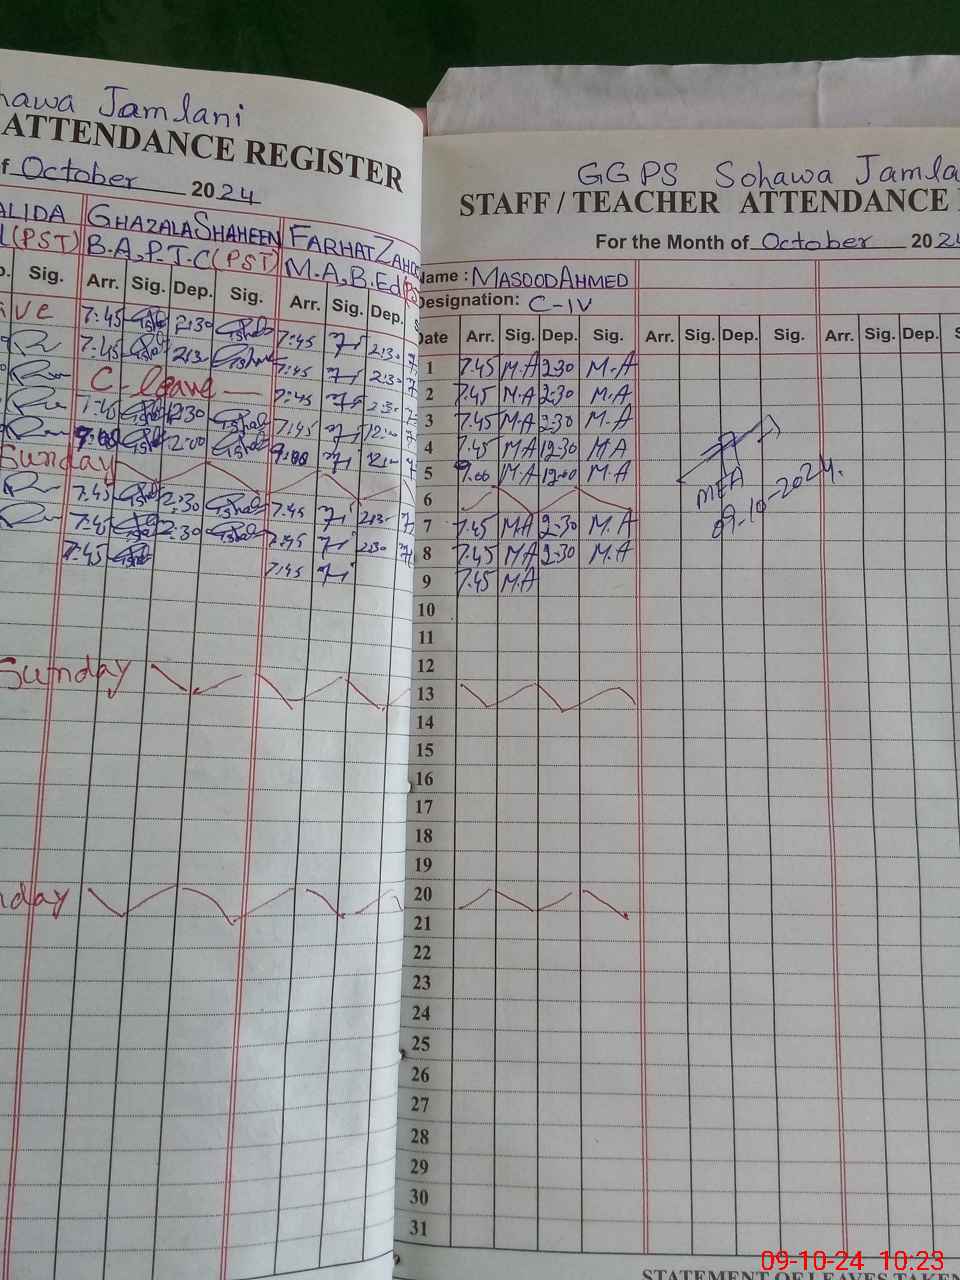 hawa Jamlani
ATTENDANCE REGISTER
f October 2024
ALIDA GHAZALA SHAHEEN FARHAT ZAHO
(PST) B.A, P.T.C (PST) M.A, B.Ed (PS
Sig. Arr. Sig. Dep. Sig. Arr. Sig. Dep. S
ave 7:45 2:30 7:45 2:30
7:45 2:3 7:45 2:3
C-leave 7:45 2:3
7:45 12:30 7:45 12:
9:00 12:00 9:00 12:
Sunday
7:45 2:30 7:45 2:3
7:45 2:30 7:45 2:30
7:45 7:45
Sunday
nday
GGPS Sohawa Jamla
STAFF / TEACHER ATTENDANCE
For the Month of October 202
Name : MASOOD AHMED
Designation: C-IV
Date Arr. Sig. Dep. Sig. Arr. Sig. Dep. Sig. Arr. Sig. Dep. S
1 7.45 M.A 2:30 M.A
2 7.45 M.A 2:30 M.A
3 7.45 M.A 2:30 M.A
4 7.45 M.A 12:30 M.A
5 9.00 M.A 12:00 M.A
6
7 7.45 M.A 2:30 M.A
8 7.45 M.A 2:30 M.A
9 7.45 M.A
MEA
09-10-2024.
10
11
12
13
14
15
16
17
18
19
20
21
22
23
24
25
26
27
28
29
30
31
STATEMENT OF LEAVES TAKEN
09-10-24 10:23